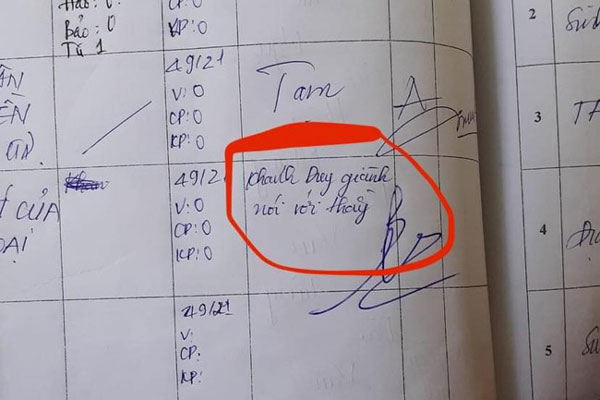 Bảo: 0
Tú 1
CP: 0
KP: 0
2
49/21
V: 0
CP: 0
KP: 0
Tạm
A
3
TH
CỦA
ĐẠI
49/21
V: 0
CP: 0
KP: 0
Khanh Duy giành
nói với thầy
B
4
49/21
V:
CP:
KP:
5